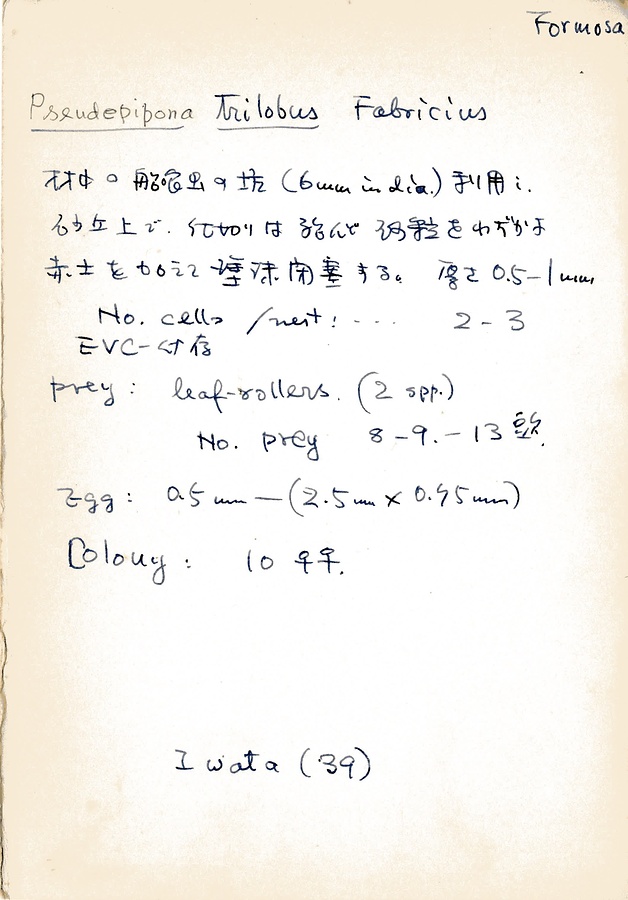 Formosa
Pseudepipona Trilobus Fabricius
材中の船喰虫の坑 (6mm in dia.) 利用し.
砂丘上で. 仕切りは殆んど 砂粒をわずかな
赤土を加えて 閉塞する。 厚さ 0.5-1mm,
No. cells /nest: --- 2-3
EVC-付存
prey: leaf-rollers. (2 spp.)
No. prey 8-9.-13 頭.
Egg: 0.5 mm — (2.5mm × 0.45mm)
Colony: 10 ♀♀.
Iwata (39)